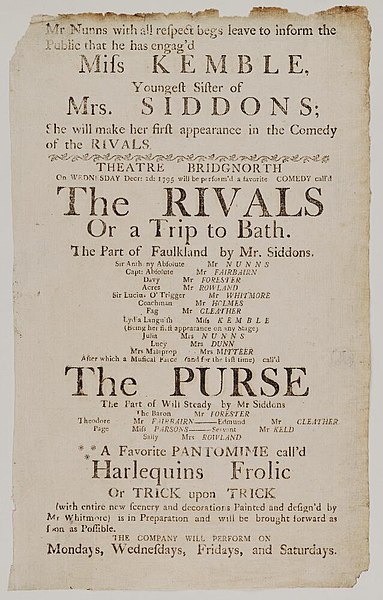 Mr Nunns with all reſpect begs leave to inform the
Public that he has engag'd
Miſs KEMBLE,
Youngeſt Siſter of
Mrs. SIDDONS;
She will make her firſt appearance in the Comedy
of the RIVALS,
THEATRE BRIDGNORTH
On WEDNESDAY Decr: 2d: 1795 will be perform'd a favorite COMEDY call'd
The RIVALS
Or a Trip to Bath.
The Part of Faulkland by Mr. Siddons.
Sir Anthony Abſolute Mr NUNNS
Capt: Abſolute Mr FAIRBAIRN
Davy Mr FORESTER
Acres Mr ROWLAND
Sir Lucius O'Trigger Mr WHITMORE
Coachman Mr HOLMES
Fag Mr CLEATHER
Lydia Languiſh Miſs KEMBLE
(Being her firſt appearance on any Stage)
Julia Mrs NUNNS
Lucy Mrs DUNN
Mrs Malaprop Mrs MITTEER
After which a Muſical Farce (and for the laſt time) call'd
The PURSE
The Part of Will Steady by Mr Siddons
The Baron Mr FORESTER
Theodore Mr FAIRBAIRN——Edmund Mr CLEATHER
Page Miſs PARSONS——Servant Mr KELD
Sally Mrs ROWLAND
*** A Favorite PANTOMIME call'd
Harlequins Frolic
Or TRICK upon TRICK
(with entire new ſcenery and decorations Painted and deſign'd by
Mr Whitmore) is in Preparation and will be brought forward as
ſoon as Poſſible.
THE COMPANY WILL PERFORM ON
Mondays, Wedneſdays, Fridays, and Saturdays.